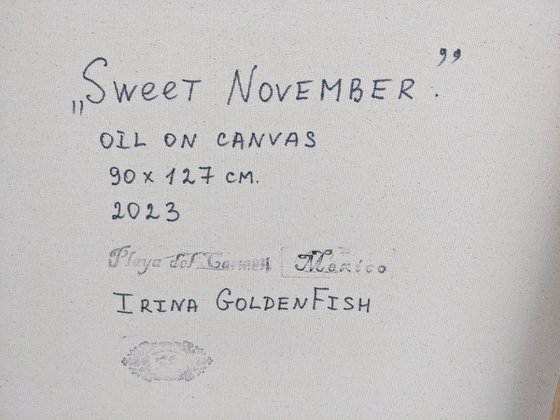 „Sweet November.”
Oil on canvas
90 x 127 cm.
2023
Playa del Carmen Mexico
Irina GoldenFish